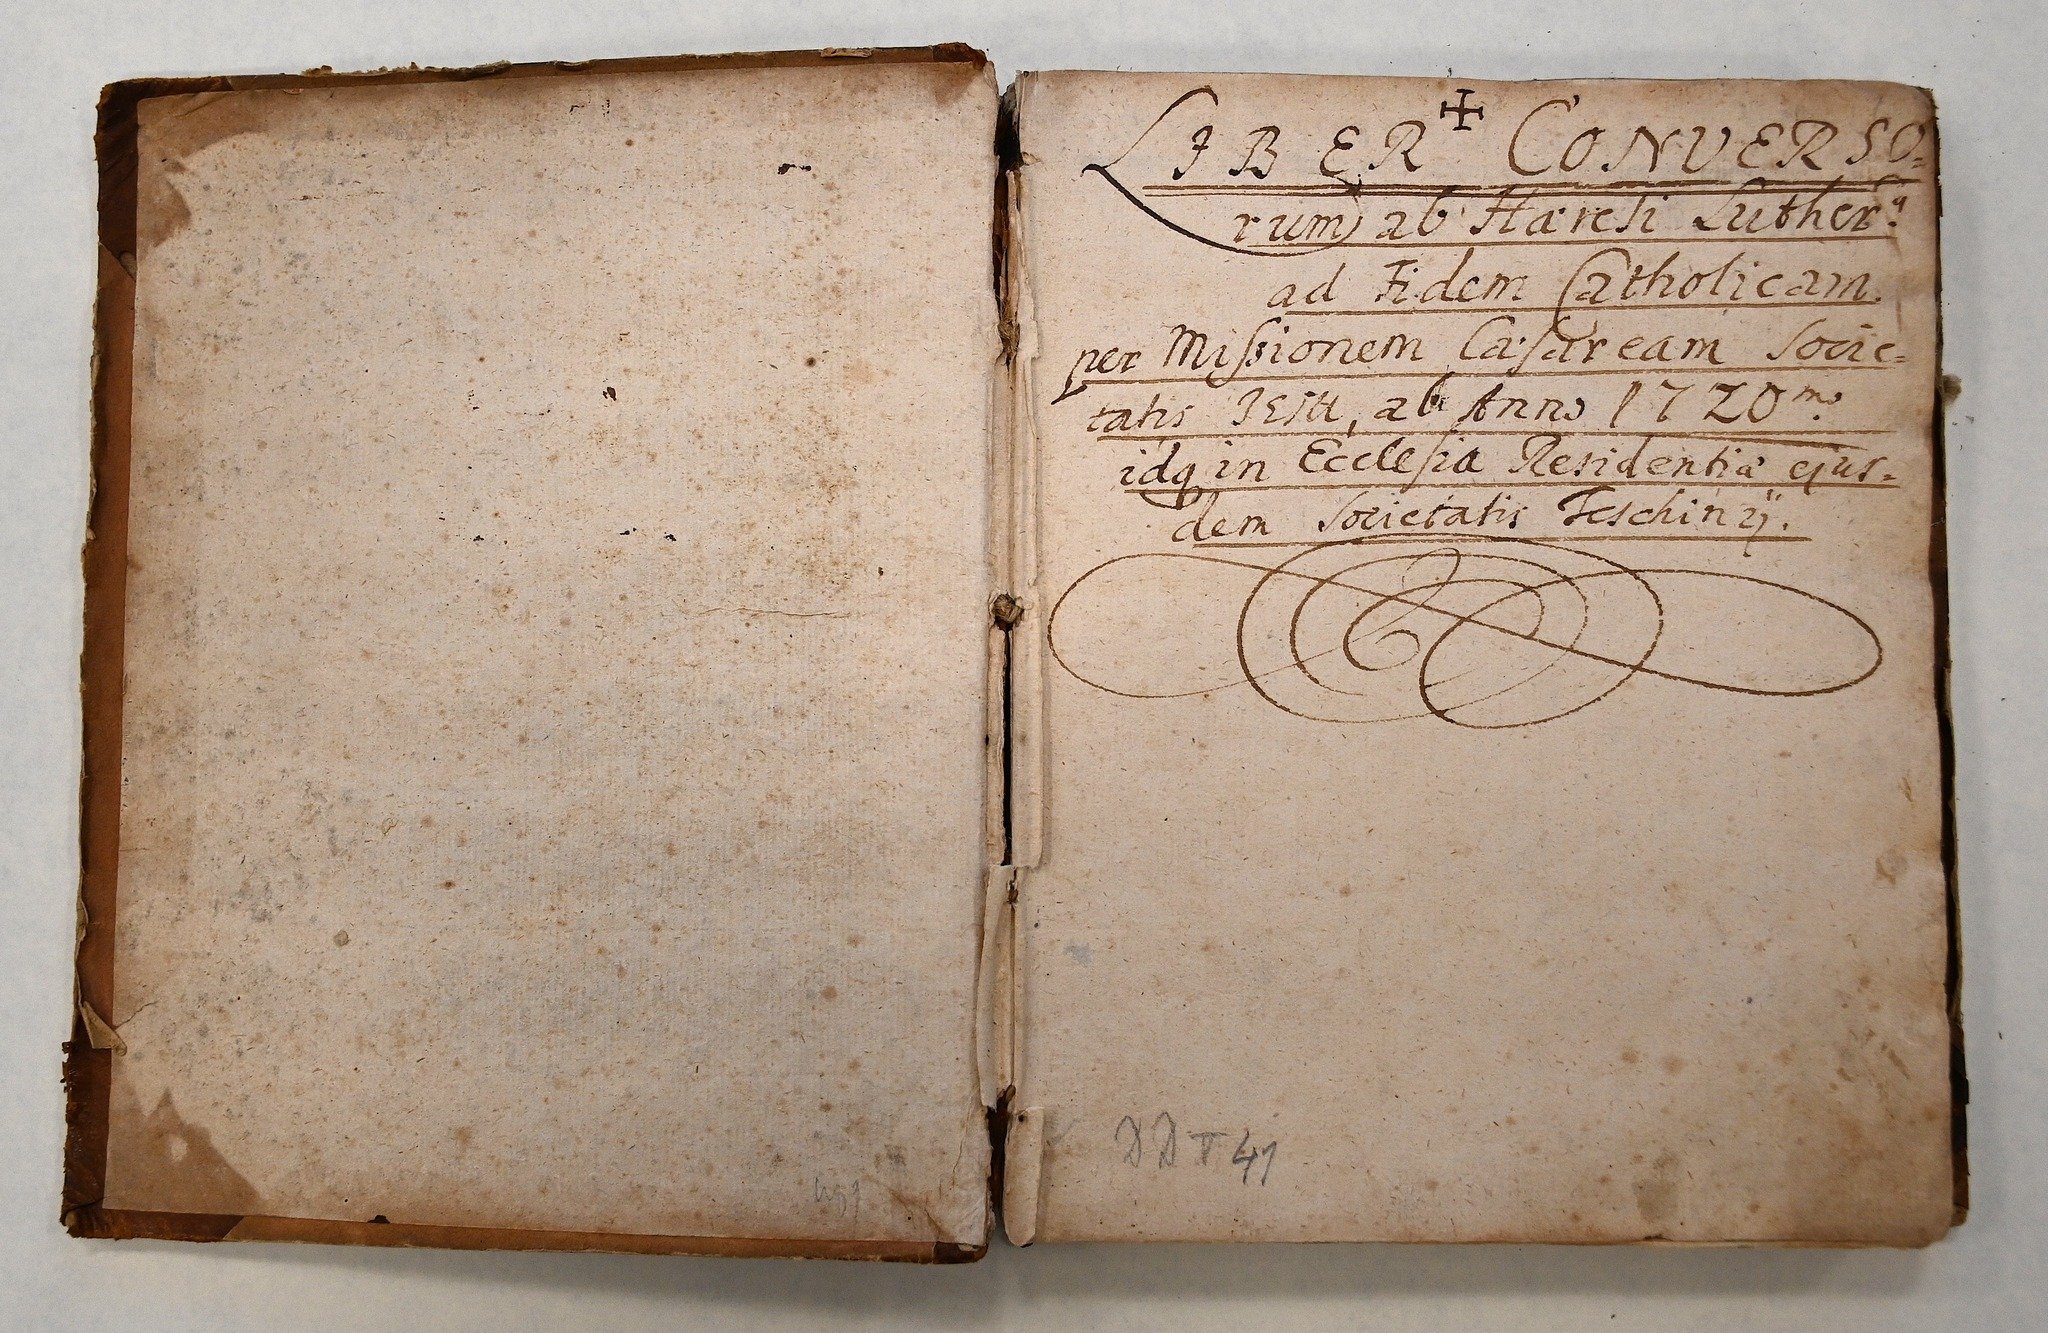 LIBER CONVERSO=
rum ab Hæresi Luther:ª
ad Fidem Catholicam
per Missionem Cæsaream Socie=
tatis JESU, ab Anno 1720mo
idq in Ecclesia Residentiæ ejus=
dem Societatis Teschinÿ.
DD V 41